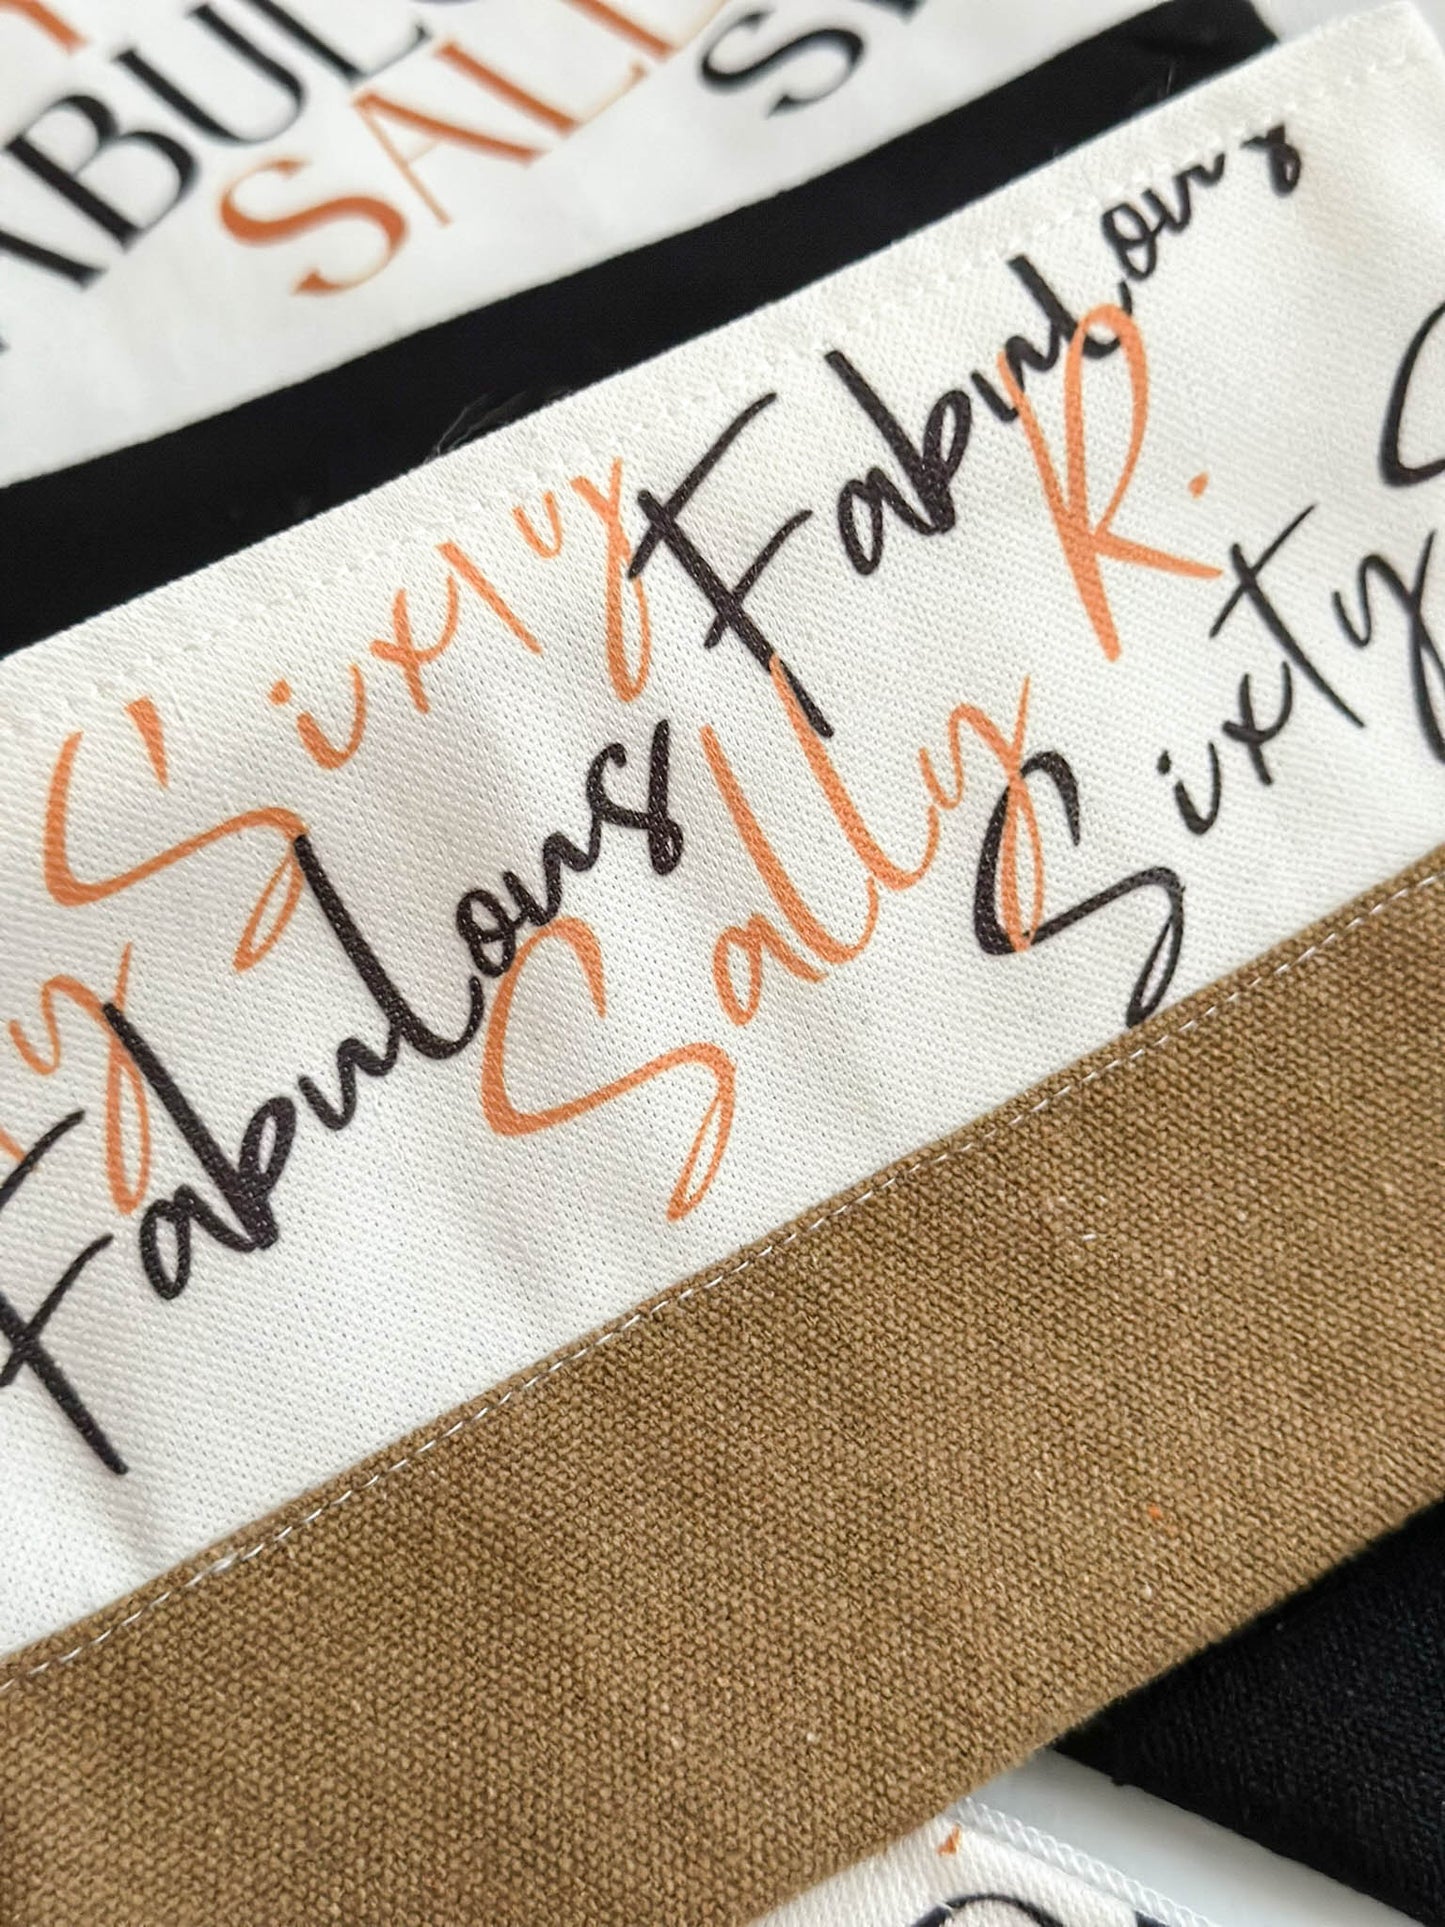 SALL
Sixty Fabulous R.
Fabulous Sally Sixty